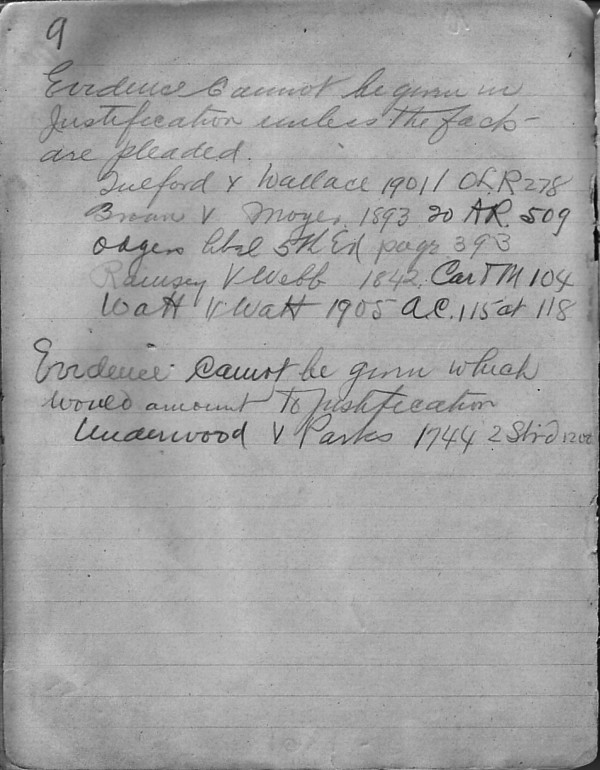 9
Evidence Cannot be given in
Justification unless the facts
are pleaded.
v Wallace 1901 / O.L.R 278
v Moyer 1893 20 A.R. 509
Odgers libel 5th Ed page 393
Ramsey v Webb 1842 Car & M 104
Watt v Watt 1905 A.C. 115 at 118
Evidence Cannot be given which
would amount to justification
Underwood v Parks 1744 2 1200